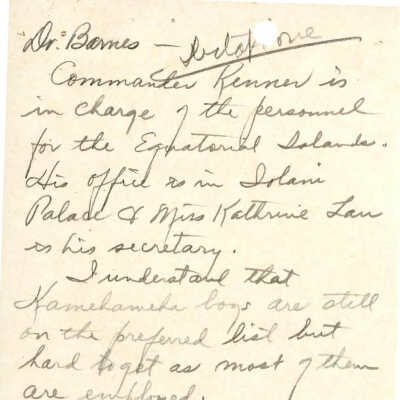 Dr. Barnes — Dictaphone
Commander Renner is
in charge of the personnel
for the Equatorial Islands.
His office is in Iolani
Palace & Miss Kathrine Lau
is his secretary.
I understand that
Kamehameha boys are still
on the preferred list but
hard to get as most of them
are employed.